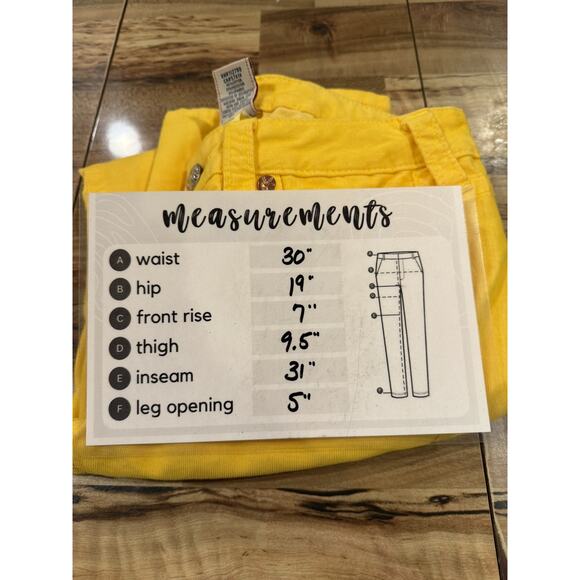 measurements
A waist 30"
B hip 19"
C front rise 7"
D thigh 9.5"
E inseam 31"
F leg opening 5"